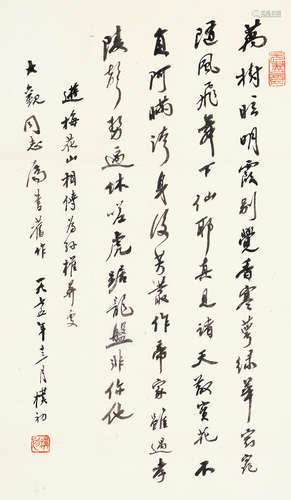 萬樹眩明霞別覺香寒萼綠華宛宛
隨風飛舞下仙耶真見諸天散寶花不
負阿瞞誇身後芳叢作帝家雖遇孝
陵聲勢逼休嗟虎踞龍盤非你他
遊梅花山相傳為孫權葬處
大觀同志屬書舊作 一九七五年十二月 樸初